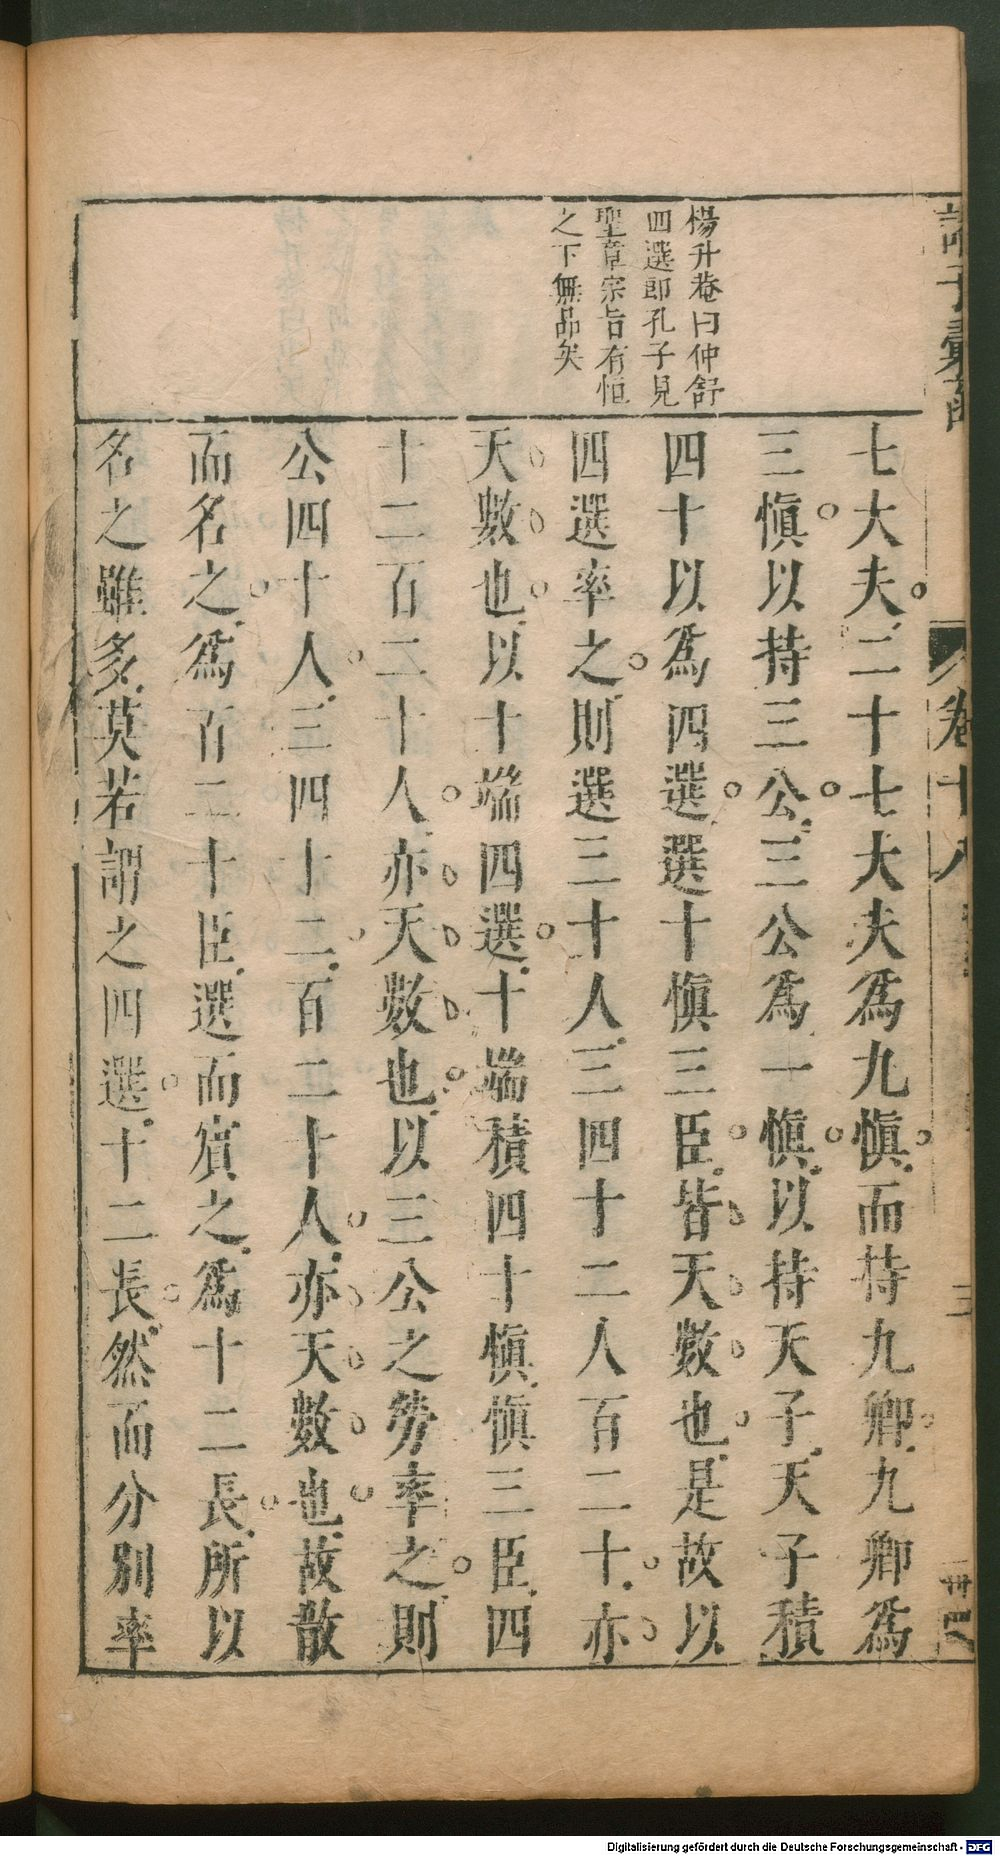 楊升菴曰仲舒
四選即孔子見
聖章宗旨有恒
之下無品矣
七大夫二十七大夫爲九慎而持九卿九卿爲
三慎以持三公三公爲一慎以持天子天子積
四十以爲四選選十慎三臣皆天數也是故以
四選率之則選三十人三四十二人百二十亦
天數也以十端四選十端積四十慎慎三臣四
十二百二十人亦天數也以三公之勞率之則
公四十人三四十二百二十人亦天數也故散
而名之爲百二十臣選而賔之爲十二長所以
名之雖多莫若謂之四選十二長然而分別率
卷十八
Digitalisierung gefördert durch die Deutsche Forschungsgemeinschaft - DFG